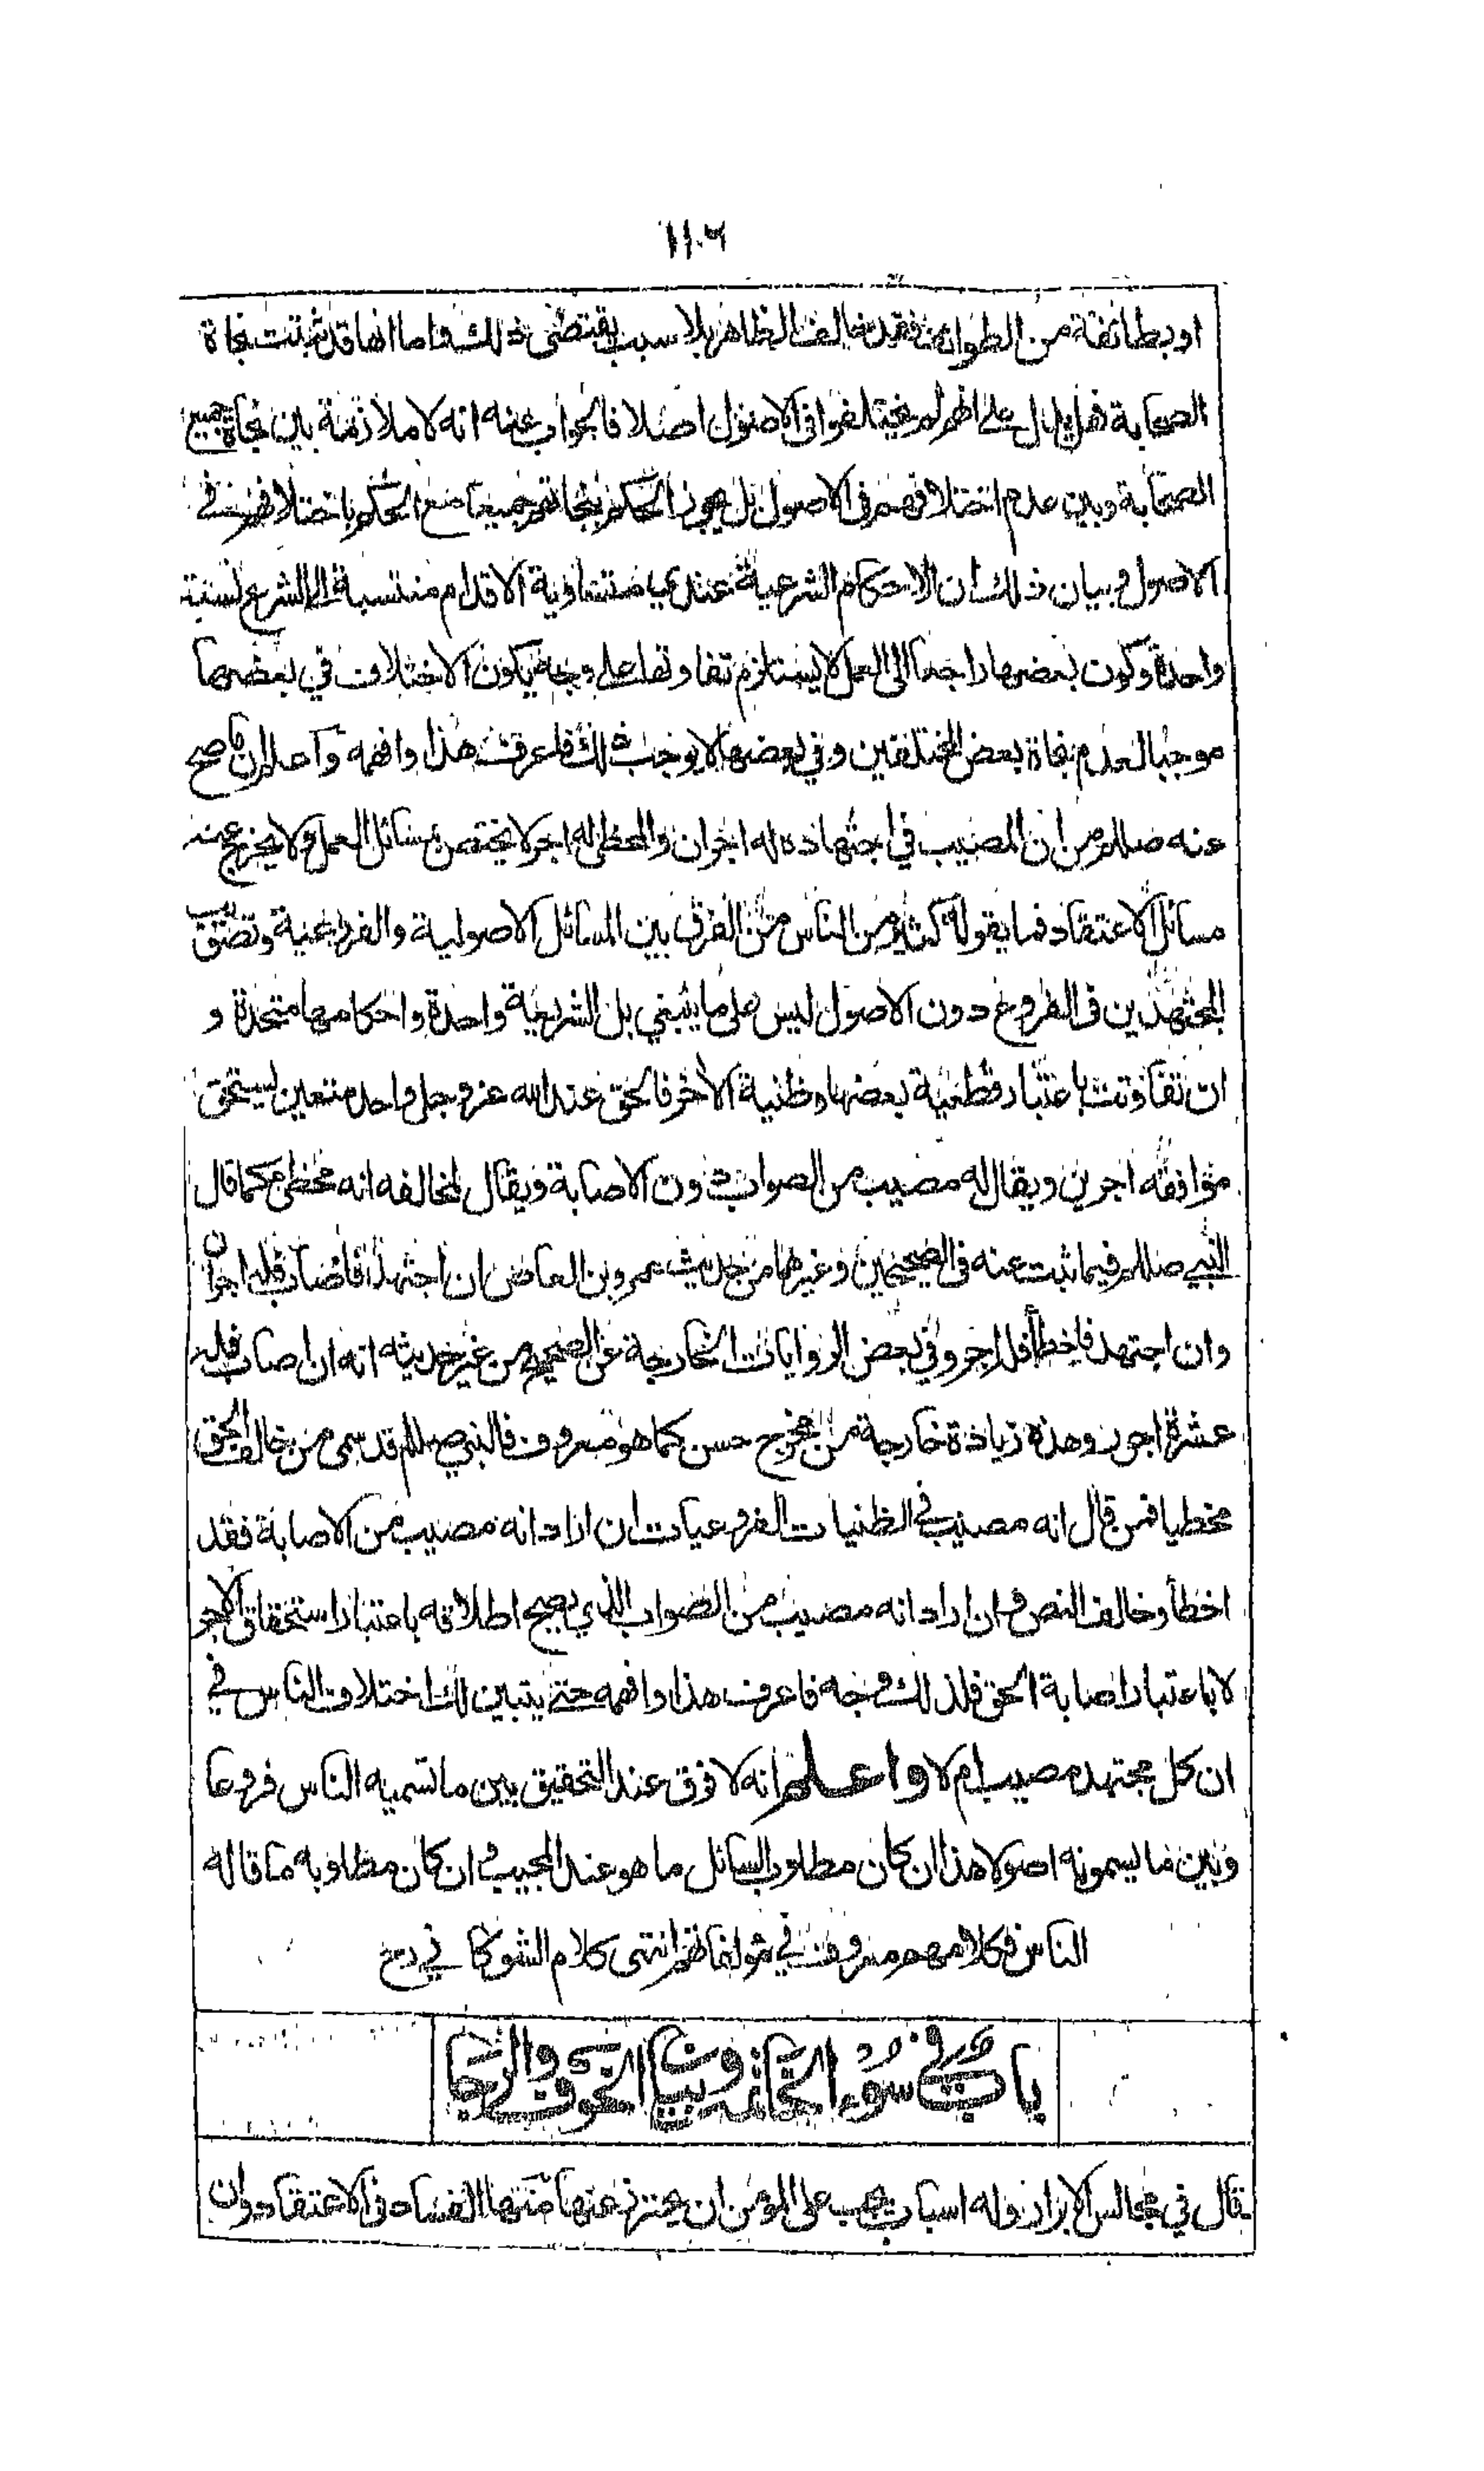 ١١٠٦
او بطائفة من الطوائف فقد خالف الظاهر بلا سبب يقتضى ذلك واما انها قد ثبتت نجاة
الصحابة فهل يدل على انهم لم يختلفوا فى الاصول اصلا فالجواب عنه انه لا ملازمة بين نجاة جميع
الصحابة وبين عدم اختلافهم فى الاصول بل يجوز الحكم بنجاتهم جميعا مع الحكم باختلافهم في
الاصول وبيان ذلك ان الاحكام الشرعية عندي متساوية الاقدام منتسبة الى الشرع نسبة
واحدة وكون بعضها راجعا الى العمل لا يستلزم تفاوتها على وجه يكون الاختلاف في بعضها
موجبا لعدم نجاة بعض المختلفين وفي بعضها لا يوجب ذلك فاعرف هذا وافهمه واعلم ان ما صح
عنه صللم من ان المصيب في اجتهاده له اجران والمخطئ له اجر لا يختص بمسائل العمل ولا يخرج عنه
مسائل الاعتقاد فما يقوله كثير من الناس من الفرق بين المسائل الاصولية والفروعية وتصويب
المجتهدين فى الفروع دون الاصول ليس على ما ينبغي بل الشريعة واحدة واحكامها متحدة و
ان تفاوتت باعتبار قطعية بعضها وظنية الاخر فالحق عند الله عز وجل واحد متعين يستحق
موافقه اجرين ويقال له مصيب من الصواب دون الاصابة ويقال لمخالفه انه مخطئ كما قال
النبي صللم فيما ثبت عنه فى الصحيحين وغيرهما من حديث عمرو بن العاص ان اجتهد فاصاب فله اجران
وان اجتهد فاخطأ فله اجر وفي بعض الروايات الخارجة عن الصحيح من غير حديثه انه ان اصاب فله
عشرة اجور وهذه زيادة خارجة من مخرج حسن كما هو معروف فالنبي صللم قد سمى من خالف الحق
مخطيا فمن قال انه مصيب في الظنيات الفروعيات ان اراد انه مصيب من الاصابة فقد
اخطأ وخالف النص وان اراد انه مصيب من الصواب الذي يصح اطلاقه باعتبار استحقاق الاجر
لا باعتبار اصابة الحق فلذلك وجه فاعرف هذا وافهمه حتى يتبين لك اختلاف الناس في
ان كل مجتهد مصيب ام لا واعلم انه لا فرق عند التحقيق بين ما تسميه الناس فروعا
وبين ما يسمونه اصولا هذا ان كان مطلوب السائل ما هو عند المجيب وان كان مطلوبه ما قاله
الناس فكلامهم معروف في مؤلفاتهم انتهى كلام الشوكاني رح
باب في سوء الخاتمة وبيان الخوف والرجا
قال في مجالس الابرار وله اسباب يجب على المؤمن ان يحترز عنها منها الفساد فى الاعتقاد وان